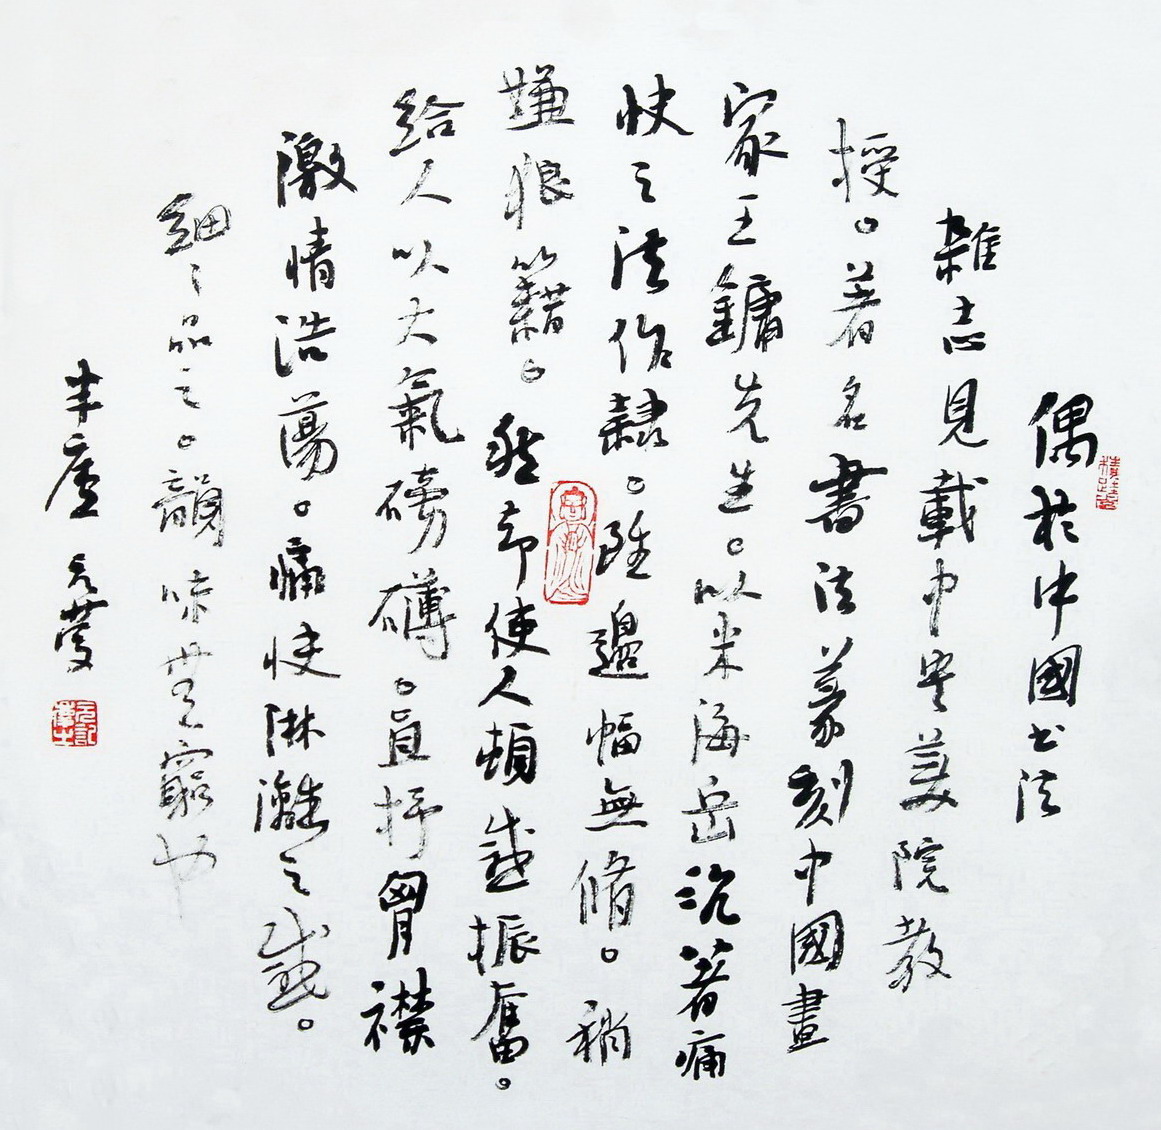 偶於中國书法
雜志見載中央美院教
授。著名書法篆刻中國畫
家王鏞先生。以米海岳沉著痛
快之法作隸。雖邊幅無脩。稍
嫌狼籍。然却使人頓感振奮。
給人以大氣磅礴。直抒胷襟
激情浩蕩。痛快淋漓之感。
細〻品之。韻味無窮也
半廬